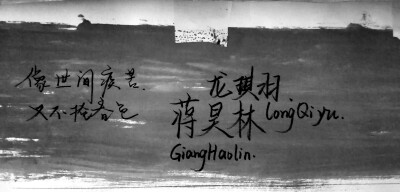 像世间疾苦、
又不拾各色
龙琪羽.
LongQiyu.
蒋昊林
GiangHaolin.